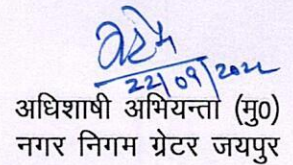 22/09/2022
अधिशाषी अभियन्ता (मु0)
नगर निगम ग्रेटर जयपुर